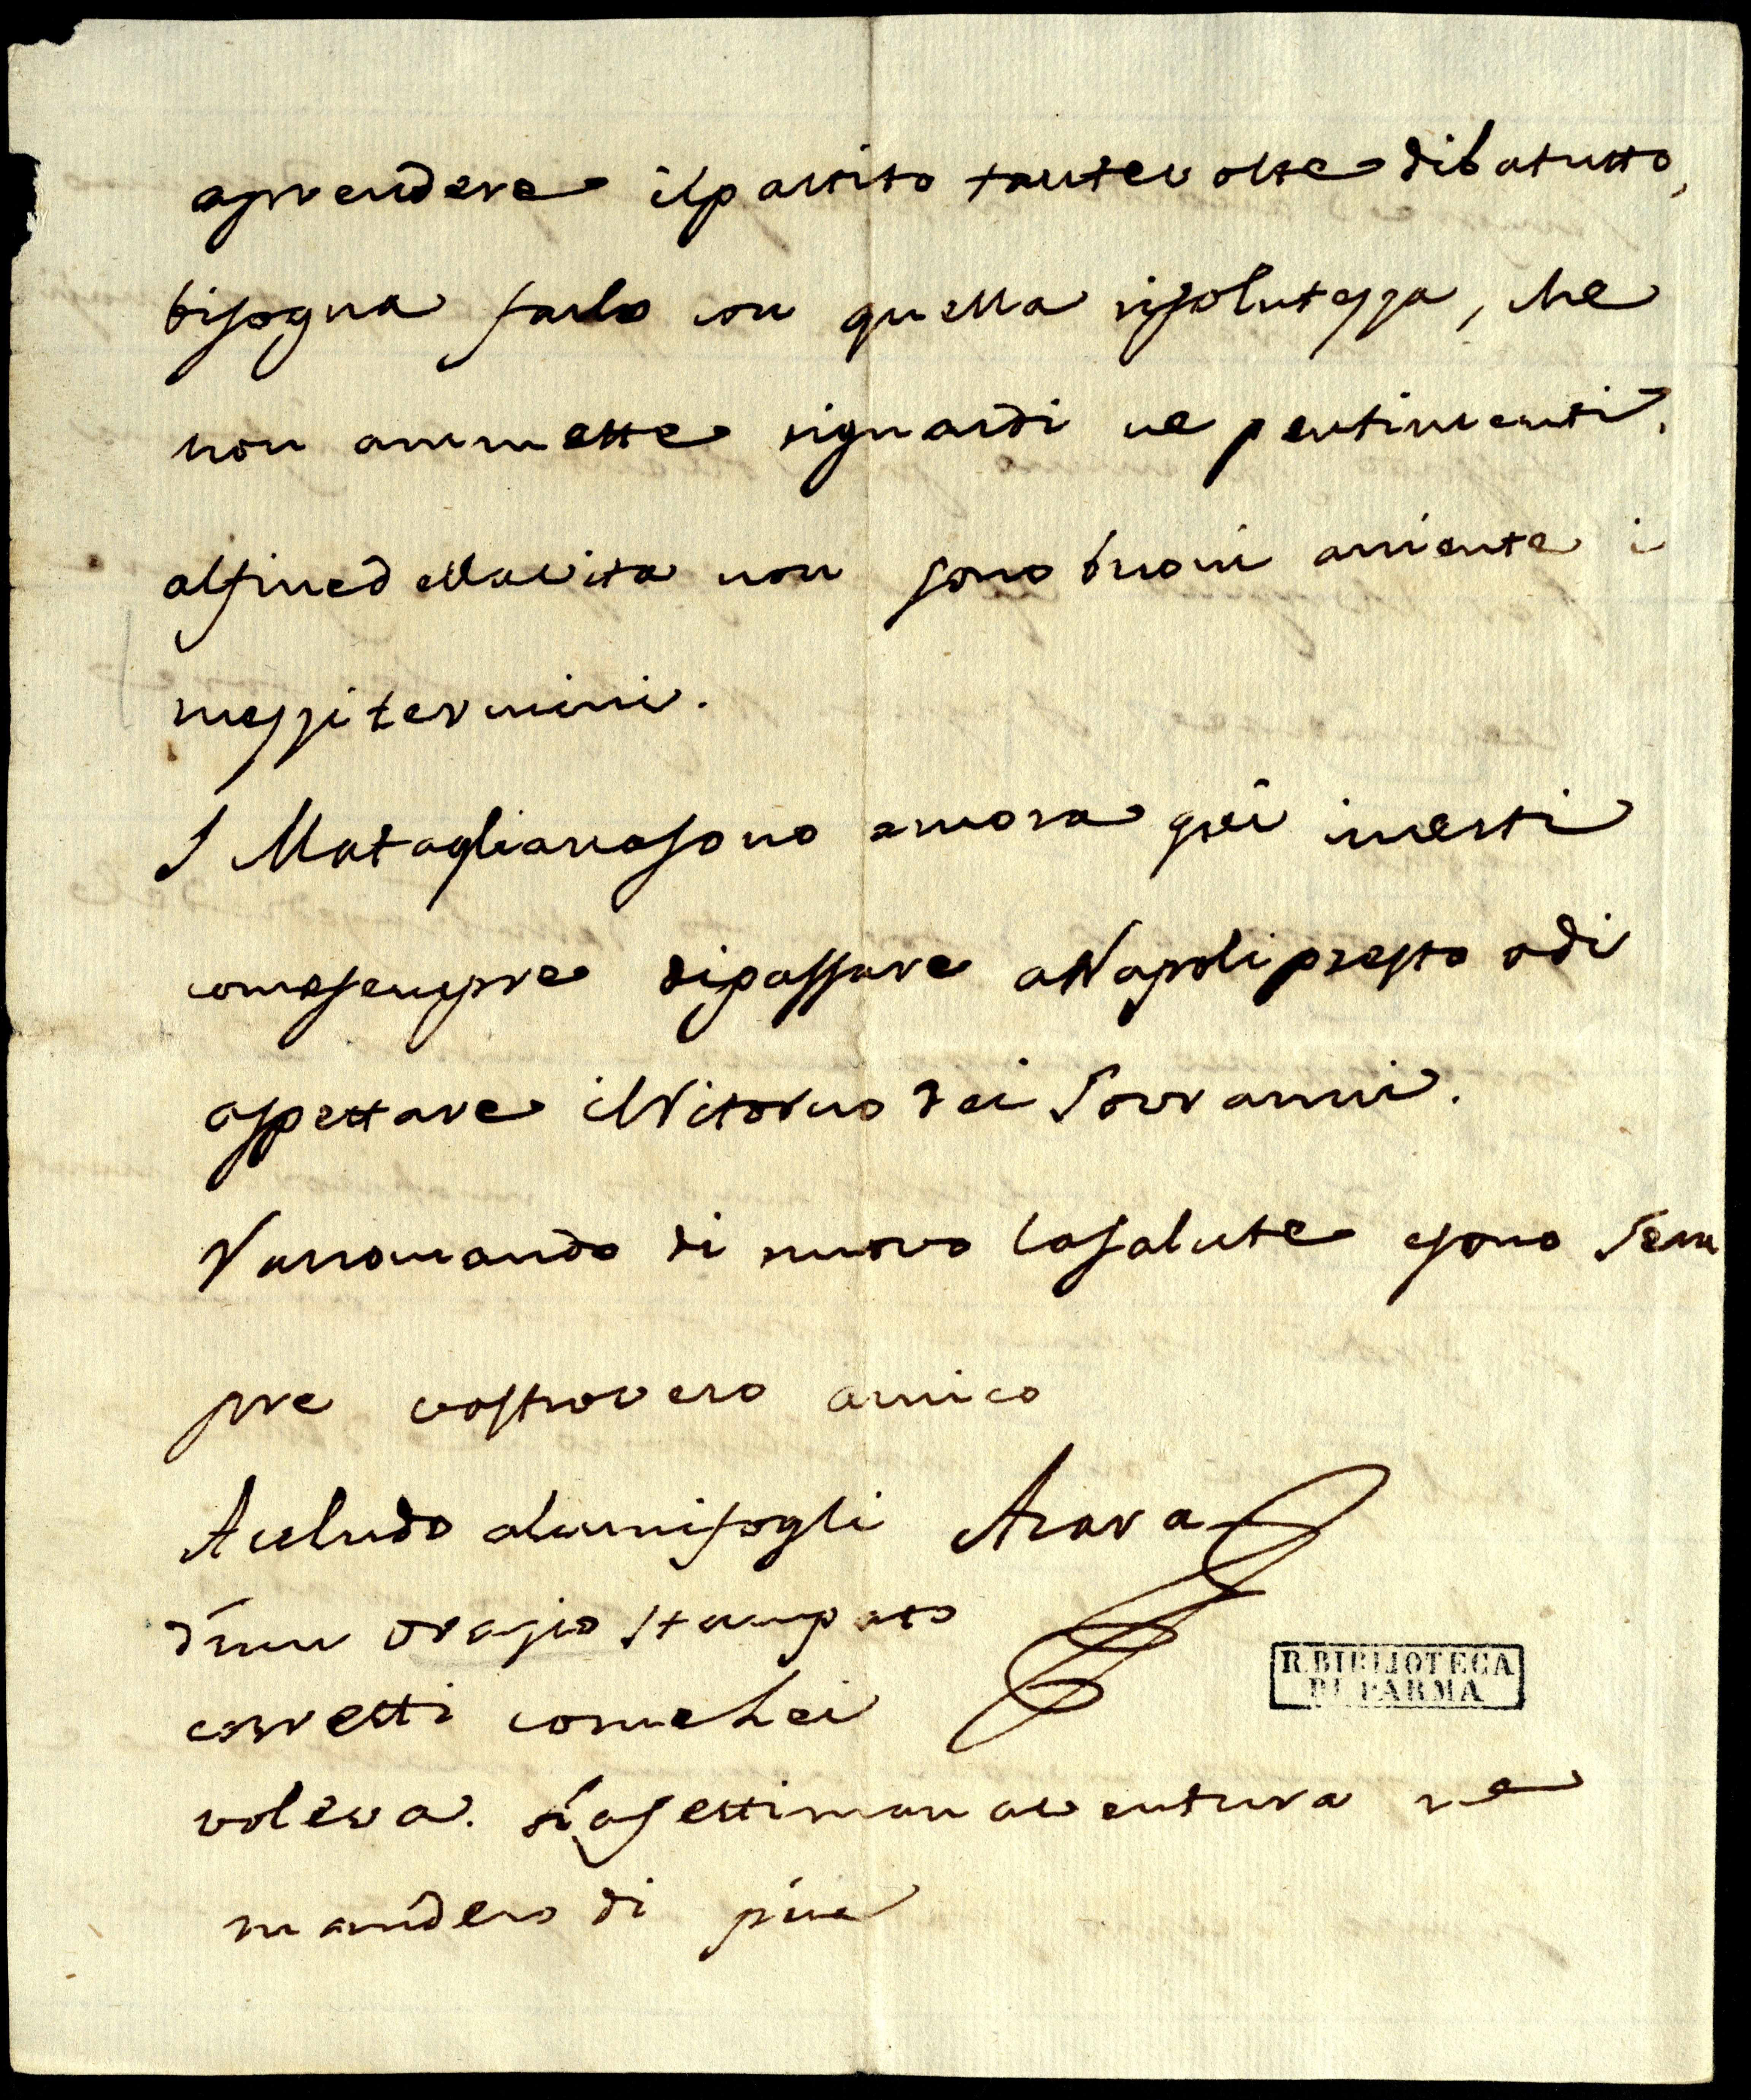 aprendere ilpartito tantevolte dibatutto,
bisogna farlo con quella risolutezza, che
non ammette riguardi ne pentimenti.
alfinedellavita non sono buoni aniente i
mezzitermini.
I Mataglianasono ancora qui incerti
comesempre dipassare aNapolipresto odi
aspettare ilritorno dei Sovranni.
Varromando di nuovo lasalute esono Sem
pre vostrovero amico
Acludo alcunifogli Azara
d'un Orazio stampato
corretti comeLei
voleva. Lasettimanaventura ne
mandero di piu
R. BIBLIOTECA
DI PARMA